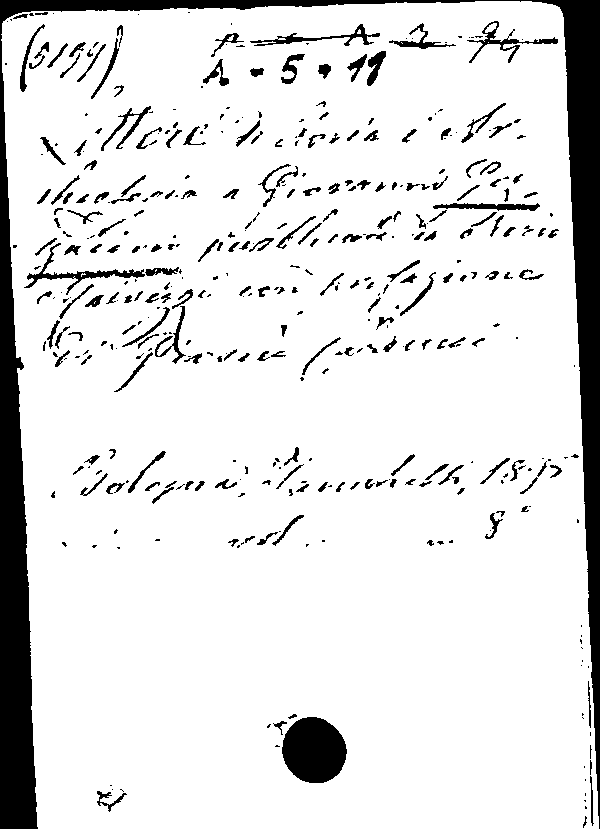 (5199)
A • 5 • 11
Lettere di Storia e Ar-
cheologia a Giovanni Goz
zadini pubblicate da Nerio
Malvezzi con prefazione
di Giosuè Carducci
Bologna, Zanichelli, 18
vol 8°